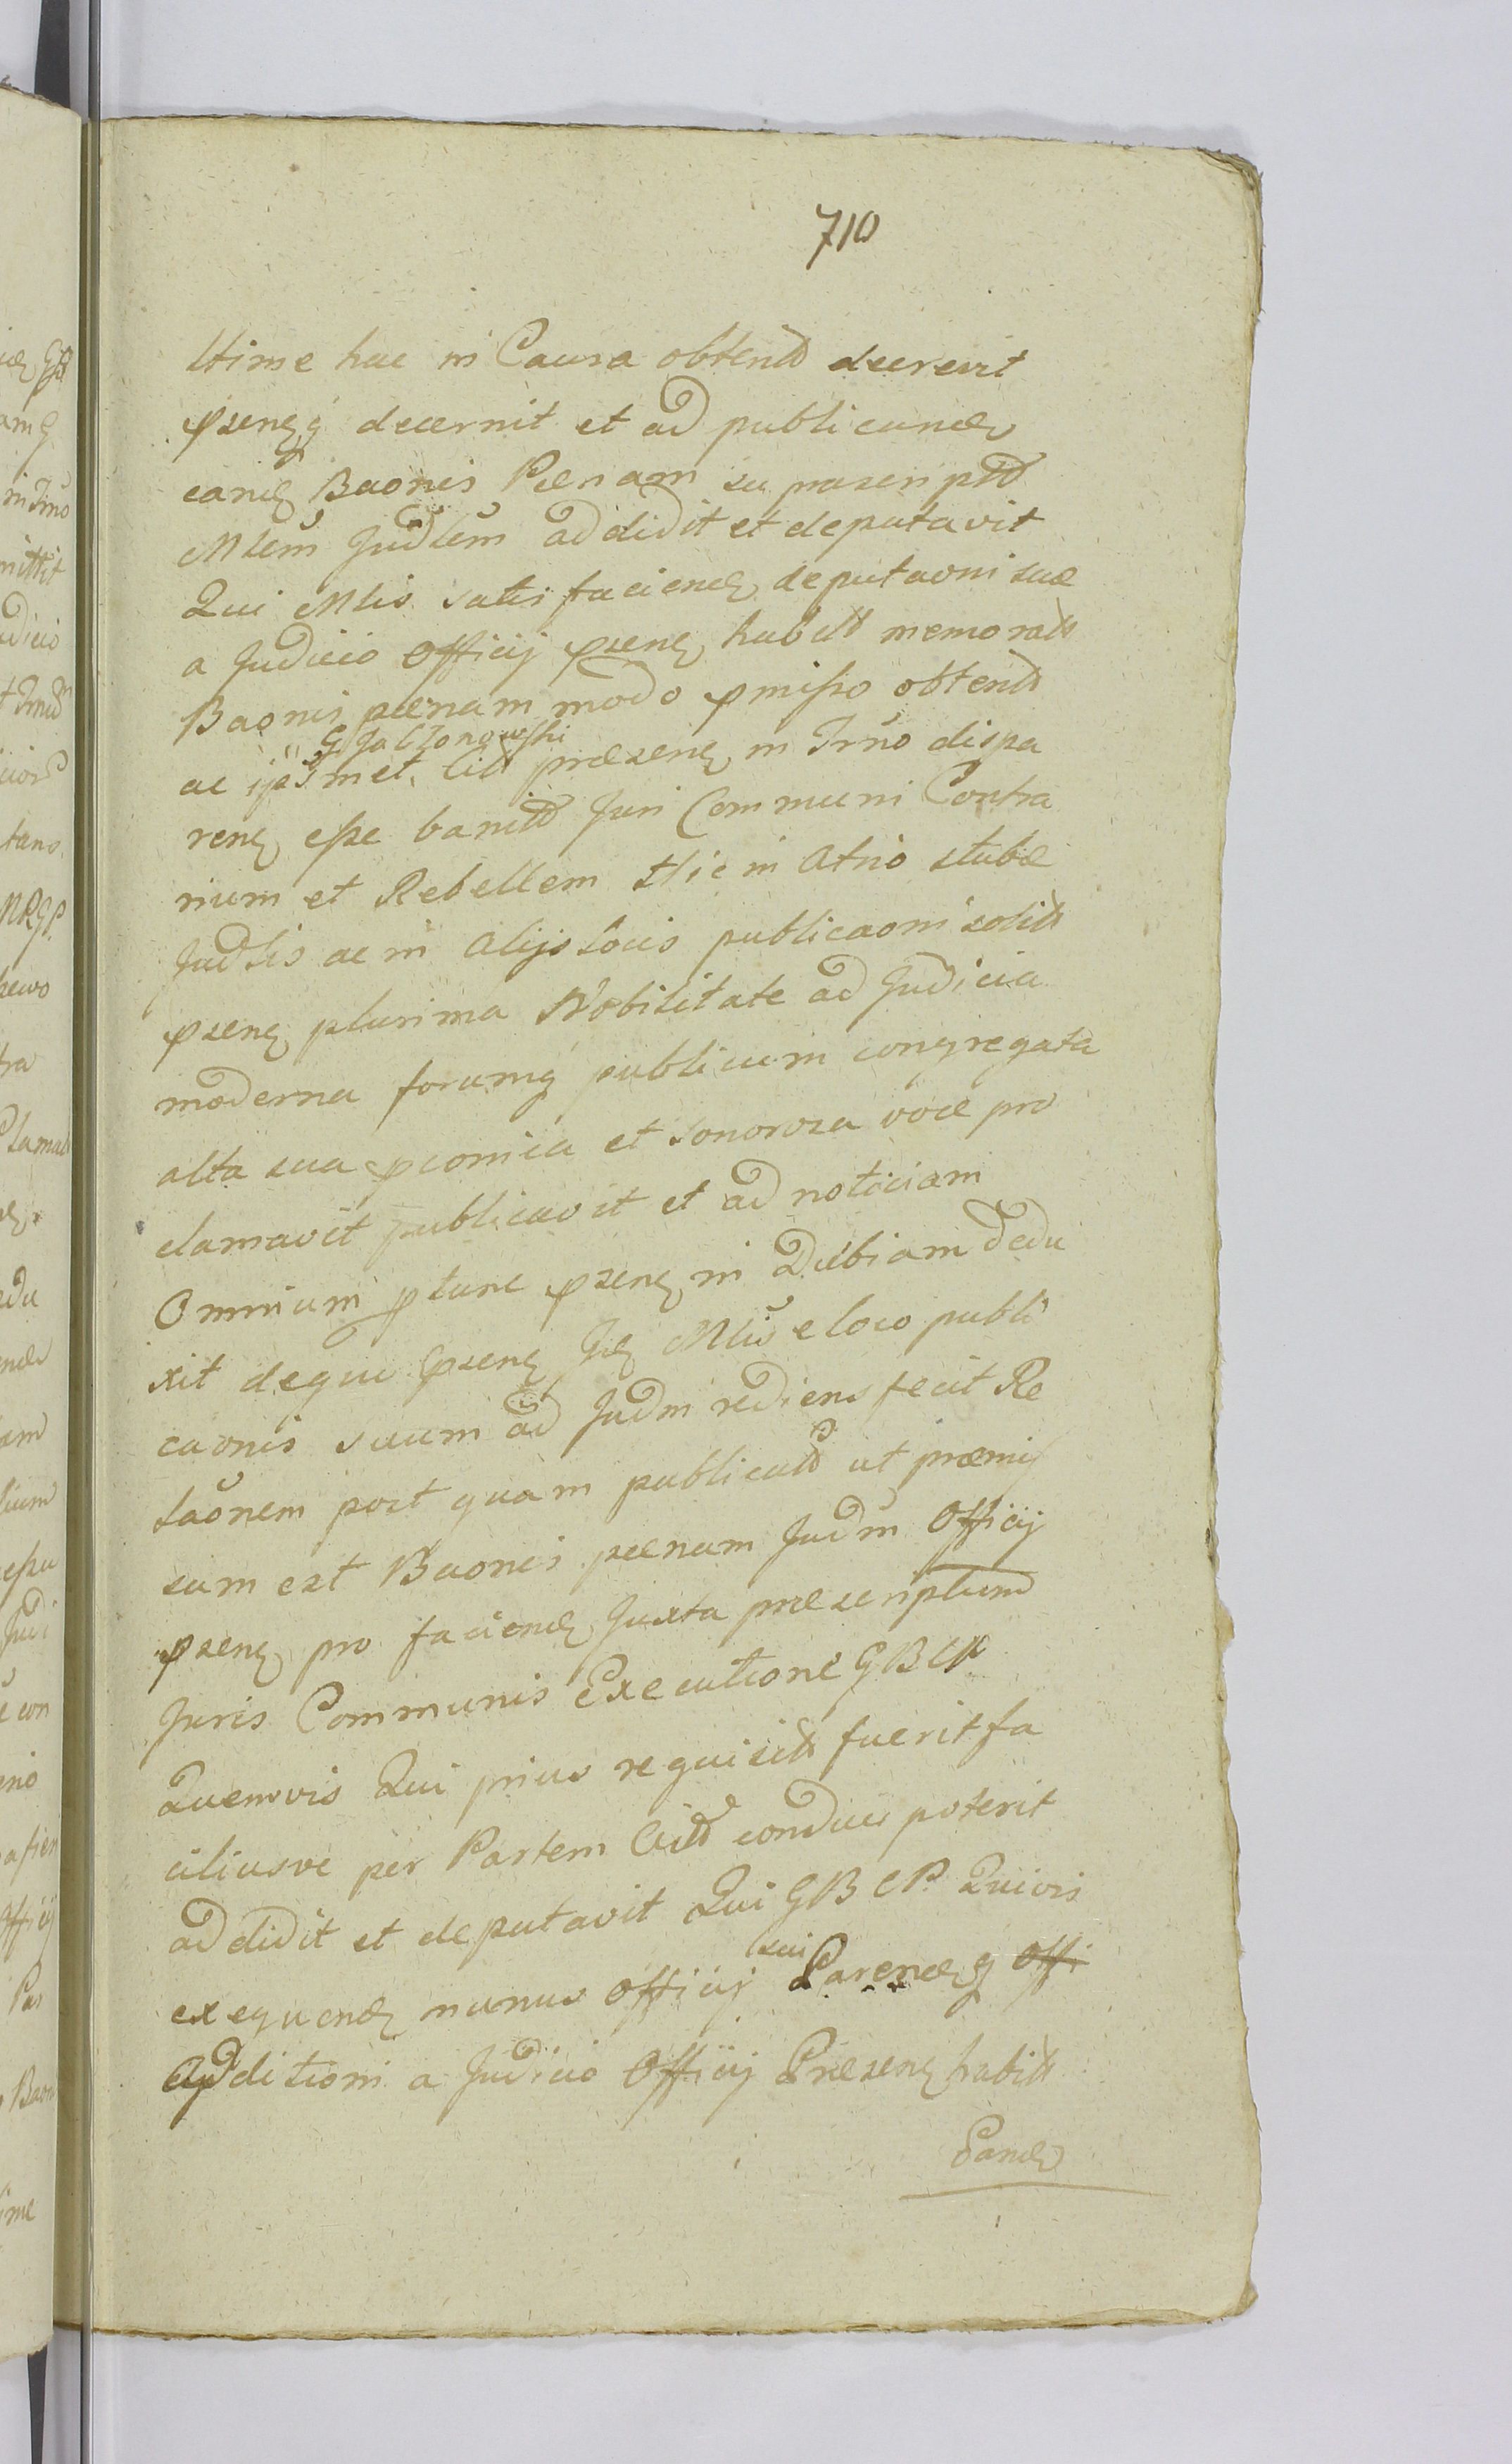 710
ltime hac in Causa obtentã decrevit
pseneq decernit et ad publicandã
eandẽ Baonis Pænam suprascriptã
Mlem Judlem addidit et deputavit
Qui Mlis satisfaciendẽ deputaoni suæ
a Judicio Officij psenẽ habitã memoratã
Baonis pænam modo pmisso obtentã
G Jabłonowski
ac ipsmet. Citt præsenẽ in Trno dispa
renẽ esse banitũ Juri Communi Contra
rium et Rebellem Hic in Atrio stubæ
Judlis ac in Alijs locis publicaoni solitis
psenẽ plurima Nobilitate ad Judicia
moderna forumq publicum congregata
alta sua pconica et sonorosa voce pro
clamavit publicavit et ad noticiam
Omnium ptunc psenẽ in Dubiam dedu
xit deque psenẽ Iẽ Mlis e loco publi
caonis suum ad Judm rediens fecit Re
laonem post quam publicatã ut præmis
sum est Baonis pænam Judm Officij
psenẽ pro faciendẽ Juxta præscriptum
Juris Communis Executione GBCP
Quemvis Qui prius requisitũ fuerit fa
ciliusve per Partem Citt conduci poterit
addidit et deputavit Qui GBCP. Quivis
sui
exequendẽ munus Officij Parendẽq Offi
Additioni a Judicio Officij Præsenẽ habitã
Eandẽ